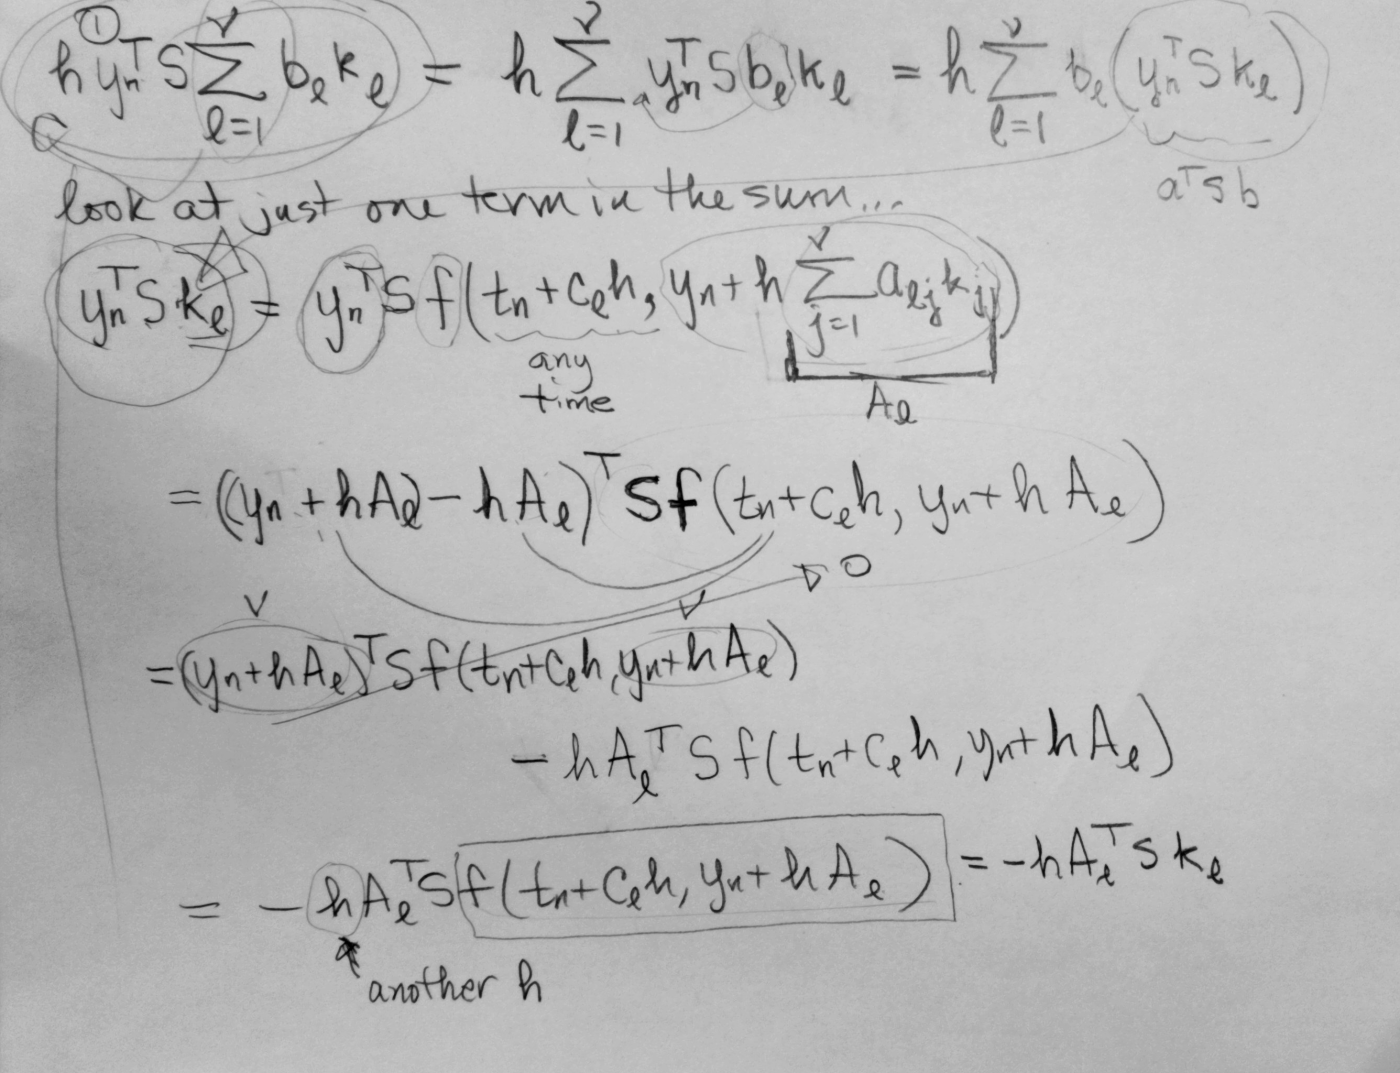 ①
h yₙᵀ S ∑_{ℓ=1}^{ν} b_ℓ k_ℓ = h ∑_{ℓ=1}^{ν} yₙᵀ S b_ℓ k_ℓ = h ∑_{ℓ=1}^{ν} b_ℓ (yₙᵀ S k_ℓ)
aᵀ S b
look at just one term in the sum...
yₙᵀ S k_ℓ = yₙᵀ S f(tₙ + c_ℓ h, yₙ + h ∑_{j=1}^{ν} a_{ℓj} k_j)
any
time
A_ℓ
= ((yₙ + hA_ℓ) - hA_ℓ)ᵀ S f(tₙ + c_ℓ h, yₙ + h A_ℓ)
0
v v
= (yₙ + hA_ℓ)ᵀ S f(tₙ + c_ℓ h, yₙ + hA_ℓ)
- hA_ℓᵀ S f(tₙ + c_ℓ h, yₙ + hA_ℓ)
= - hA_ℓᵀ S f(tₙ + c_ℓ h, yₙ + hA_ℓ) = -hA_ℓᵀ S k_ℓ
another h